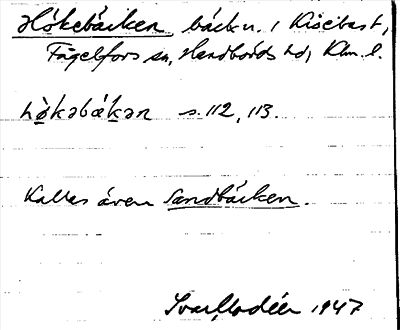 Hökebäcken bäck n. i Kisebast,
Fågelfors sn, Handbörds hd, Klm. l.
hø̀kəbäkən s. 112, 113.
Kallas även Sandbäcken.
Ivar Modéer 1947